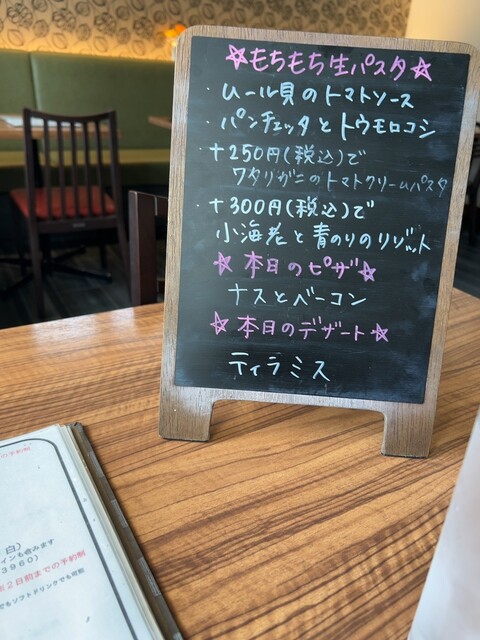 ☆もちもち生パスタ☆
・ムール貝のトマトソース
・パンチェッタとトウモロコシ
・+250円(税込)で
ワタリガニのトマトクリームパスタ
・+300円(税込)で
小海老と青のりのリゾット
☆本日のピザ☆
ナスとベーコン
☆本日のデザート☆
ティラミス
の予約制
白)
インも含みます
3960)
2日前までの予約制
でもソフトドリンクでも可能